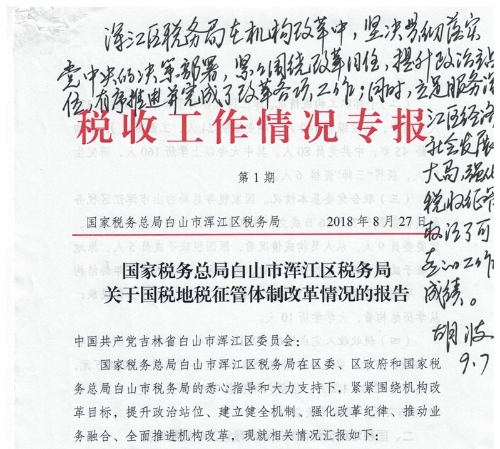 浑江区税务局在机构改革中，坚决贯彻落实
党中央的决策部署，紧紧围绕改革目标，提升政治站
位，有序推进并完成了改革各项工作；同时，立足服务浑
江区经济
社会发展
大局，强化
税收征管
取得了可
喜的工作
成绩。
胡波
9.7
税收工作情况专报
第1期
国家税务总局白山市浑江区税务局 2018年8月27日
国家税务总局白山市浑江区税务局
关于国税地税征管体制改革情况的报告
中国共产党吉林省白山市浑江区委员会：
国家税务总局白山市浑江区税务局在区委、区政府和国家税
务总局白山市税务局的悉心指导和大力支持下，紧紧围绕机构改
革目标，提升政治站位、建立健全机制、强化改革纪律、推动业
务融合、全面推进机构改革，现就相关情况汇报如下：